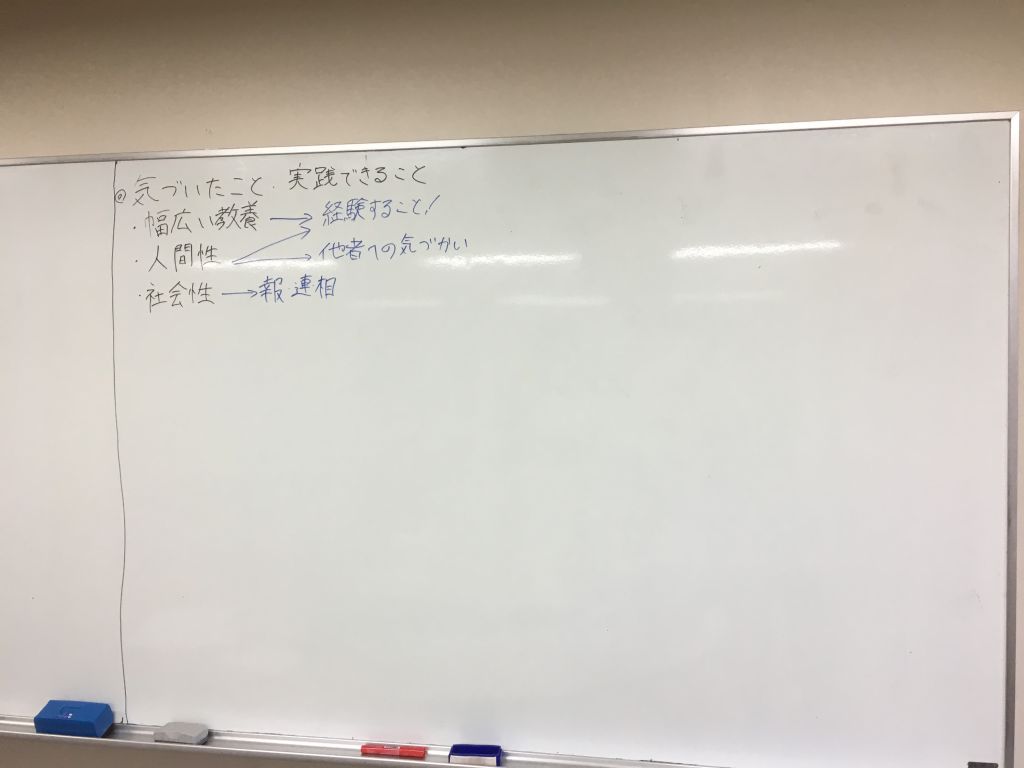 ◎気づいたこと・実践できること
・幅広い教養→経験すること!
・人間性→他者への気づかい
・社会性→報連相